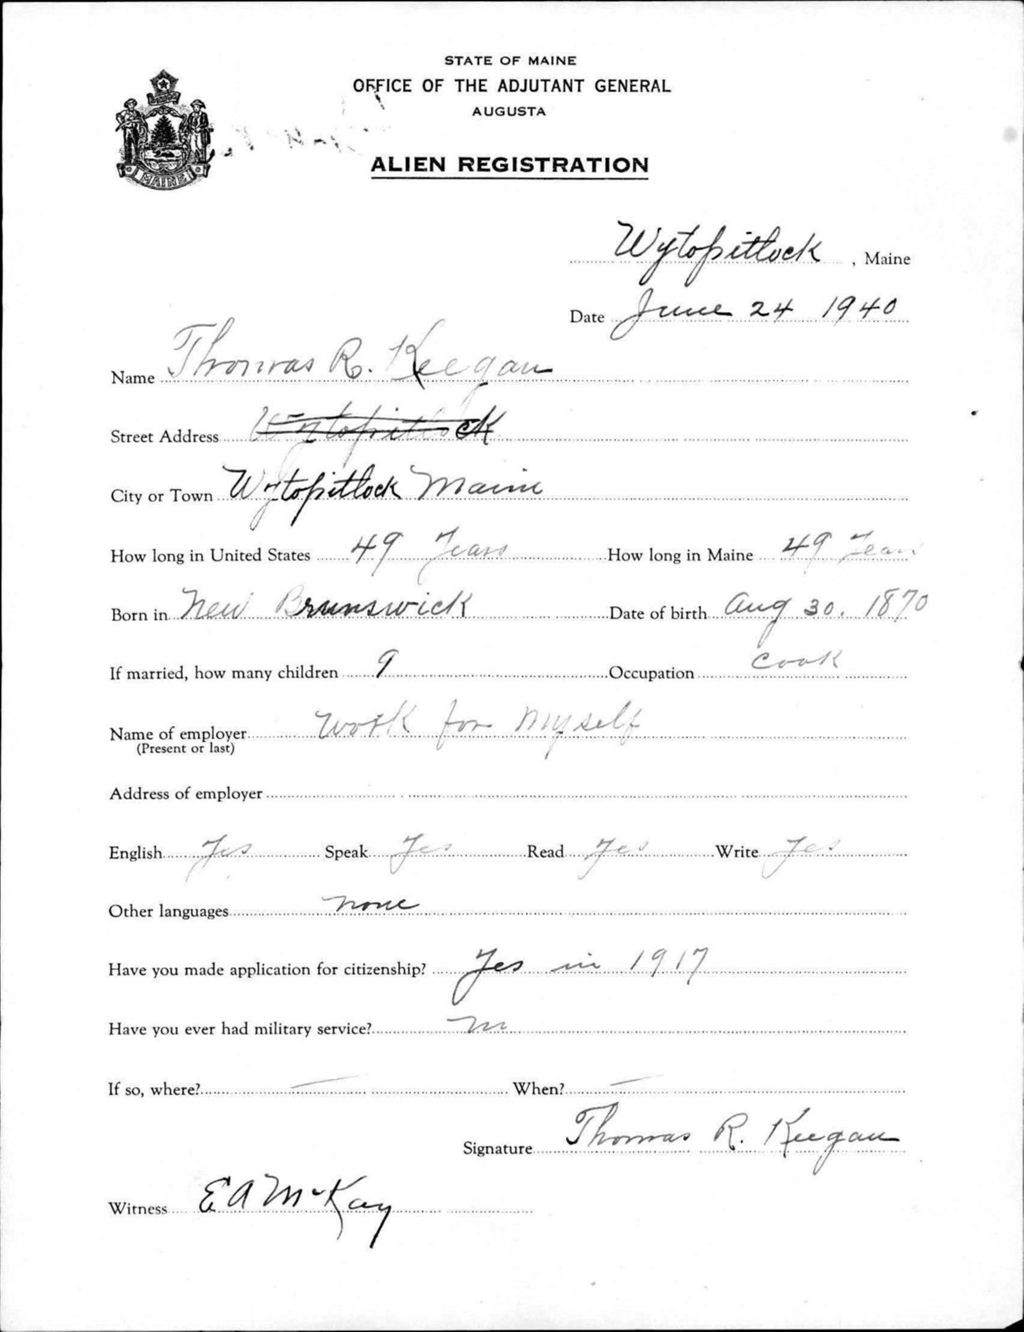 STATE OF MAINE
OFFICE OF THE ADJUTANT GENERAL
AUGUSTA
ALIEN REGISTRATION
MAINE
Wytopitlock, Maine
Date June 24 1940
Name Thomas R. Keegan
Street Address Wytopitlock
City or Town Wytopitlock Maine
How long in United States 49 Years How long in Maine 49 Years
Born in New Brunswick Date of birth Aug 30. 1870
If married, how many children 9 Occupation Cook
Name of employer Work for Myself
(Present or last)
Address of employer
English Yes Speak Yes Read Yes Write Yes
Other languages none
Have you made application for citizenship? Yes in 1917
Have you ever had military service? no
If so, where? — When? —
Signature Thomas R. Keegan
Witness E A McKay